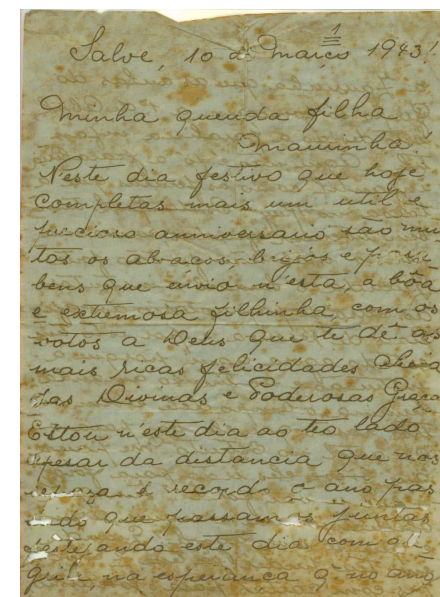 1
Salve, 10 de Março 1943!
Minha querida filha
Maurinha!
Neste dia festivo que hoje
completas mais um util e
precioso anniversario são mui
tos os abraços, beijos e para
bens que envio n'esta, a bôa
e extremosa filhinha, com os
votos a Deus que te dê as
mais ricas felicidades cheia
das Divinas e Poderosas Graça
Estou n'este dia ao teo lado
apesar da distancia que nos
separa e recordo o ano pas
sado que passamos juntas
festejando este dia com a
na esperança q no ano